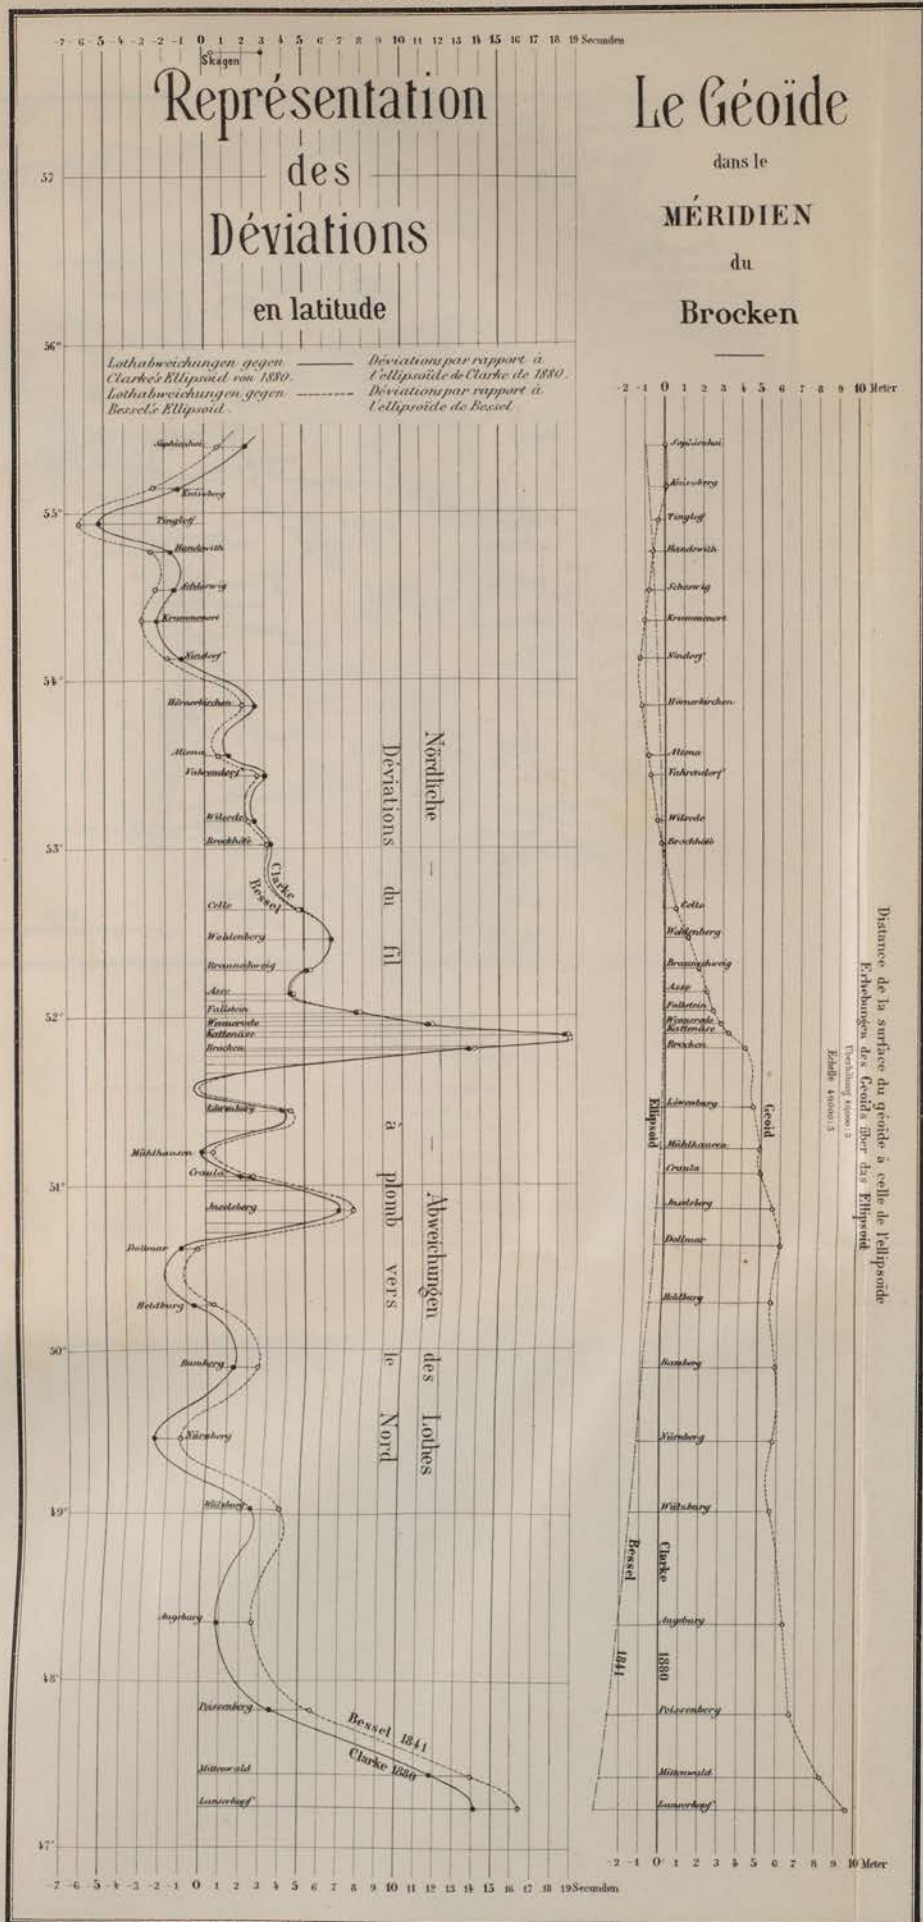 -7 -6 -5 -4 -3 -2 -1 0 1 2 3 4 5 6 7 8 9 10 11 12 13 14 15 16 17 18 19 Secunden
Skagen
Représentation
des
Déviations
en latitude
Lothabweichungen gegen
Clarke's Ellipsoid von 1880.
Lothabweichungen gegen
Bessel's Ellipsoid.
Déviations par rapport à
l'ellipsoïde de Clarke de 1880.
Déviations par rapport à
l'ellipsoïde de Bessel
57
56°
55°
54°
53°
52°
51°
50°
49°
48°
47°
Knivsberg
Tingleff
Handewith
Schleswig
Nindorf
Hörnerkirchen
Altona
Vahrendorf
Wilsede
Brockhöfe
Celle
Wohlenberg
Braunschweig
Asse
Fallstein
Kattenäse
Brocken
Löwenburg
Mühlhausen
Craula
Inselsberg
Dollmar
Heldburg
Bamberg
Nürnberg
Wülzburg
Augsburg
Peissenberg
Mittenwald
Lanserkopf
Clarke
Bessel
Bessel 1841
Clarke 1880
Nördliche – Abweichungen des Lothes
Déviations du fil à plomb vers le Nord
-7 -6 -5 -4 -3 -2 -1 0 1 2 3 4 5 6 7 8 9 10 11 12 13 14 15 16 17 18 19 Secunden
Le Géoïde
dans le
MÉRIDIEN
du
Brocken
-2 -1 0 1 2 3 4 5 6 7 8 9 10 Meter
Knivsberg
Tingleff
Handewith
Nindorf
Hörnerkirchen
Altona
Vahrendorf
Wilsede
Brockhöfe
Celle
Wohlenberg
Braunschweig
Asse
Fallstein
Kattenäse
Brocken
Löwenburg
Mühlhausen
Craula
Inselsberg
Dollmar
Heldburg
Bamberg
Nürnberg
Wülzburg
Augsburg
Peissenberg
Mittenwald
Lanserkopf
Ellipsoid
Geoid
Bessel 1841
Clarke 1880
Distance de la surface du géoïde à celle de l'ellipsoïde
Erhebungen des Geoids über das Ellipsoid
-2 -1 0 1 2 3 4 5 6 7 8 9 10 Meter